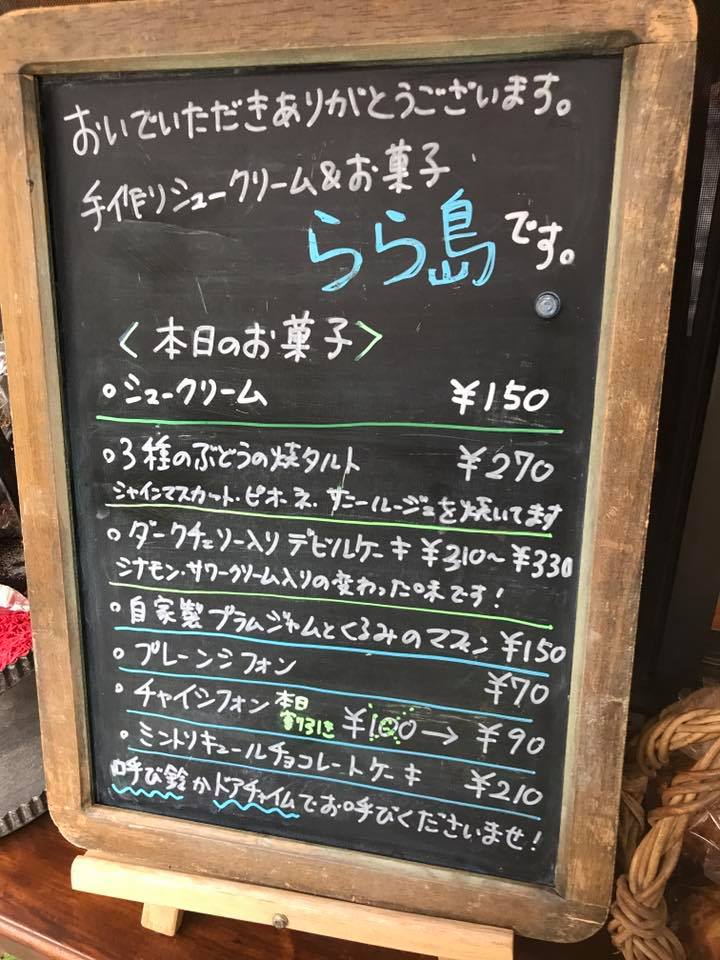 おいでいただきありがとうございます。
手作りシュークリーム&お菓子
らら島です。
〈本日のお菓子〉
・シュークリーム ¥150
・3種のぶどうの焼タルト ¥270
シャインマスカット・ピオーネ・サニールージュを焼いてます
・ダークチェリー入りデビルケーキ ¥310〜¥330
シナモン・サワークリーム入りの変わった味です!
・自家製プラムジャムとくるみのマフィン ¥150
・プレーンシフォン ¥70
・チャイシフォン 本日割引き ¥100→¥90
・ミントリキュールチョコレートケーキ ¥210
呼び鈴かドアチャイムでお呼びくださいませ!